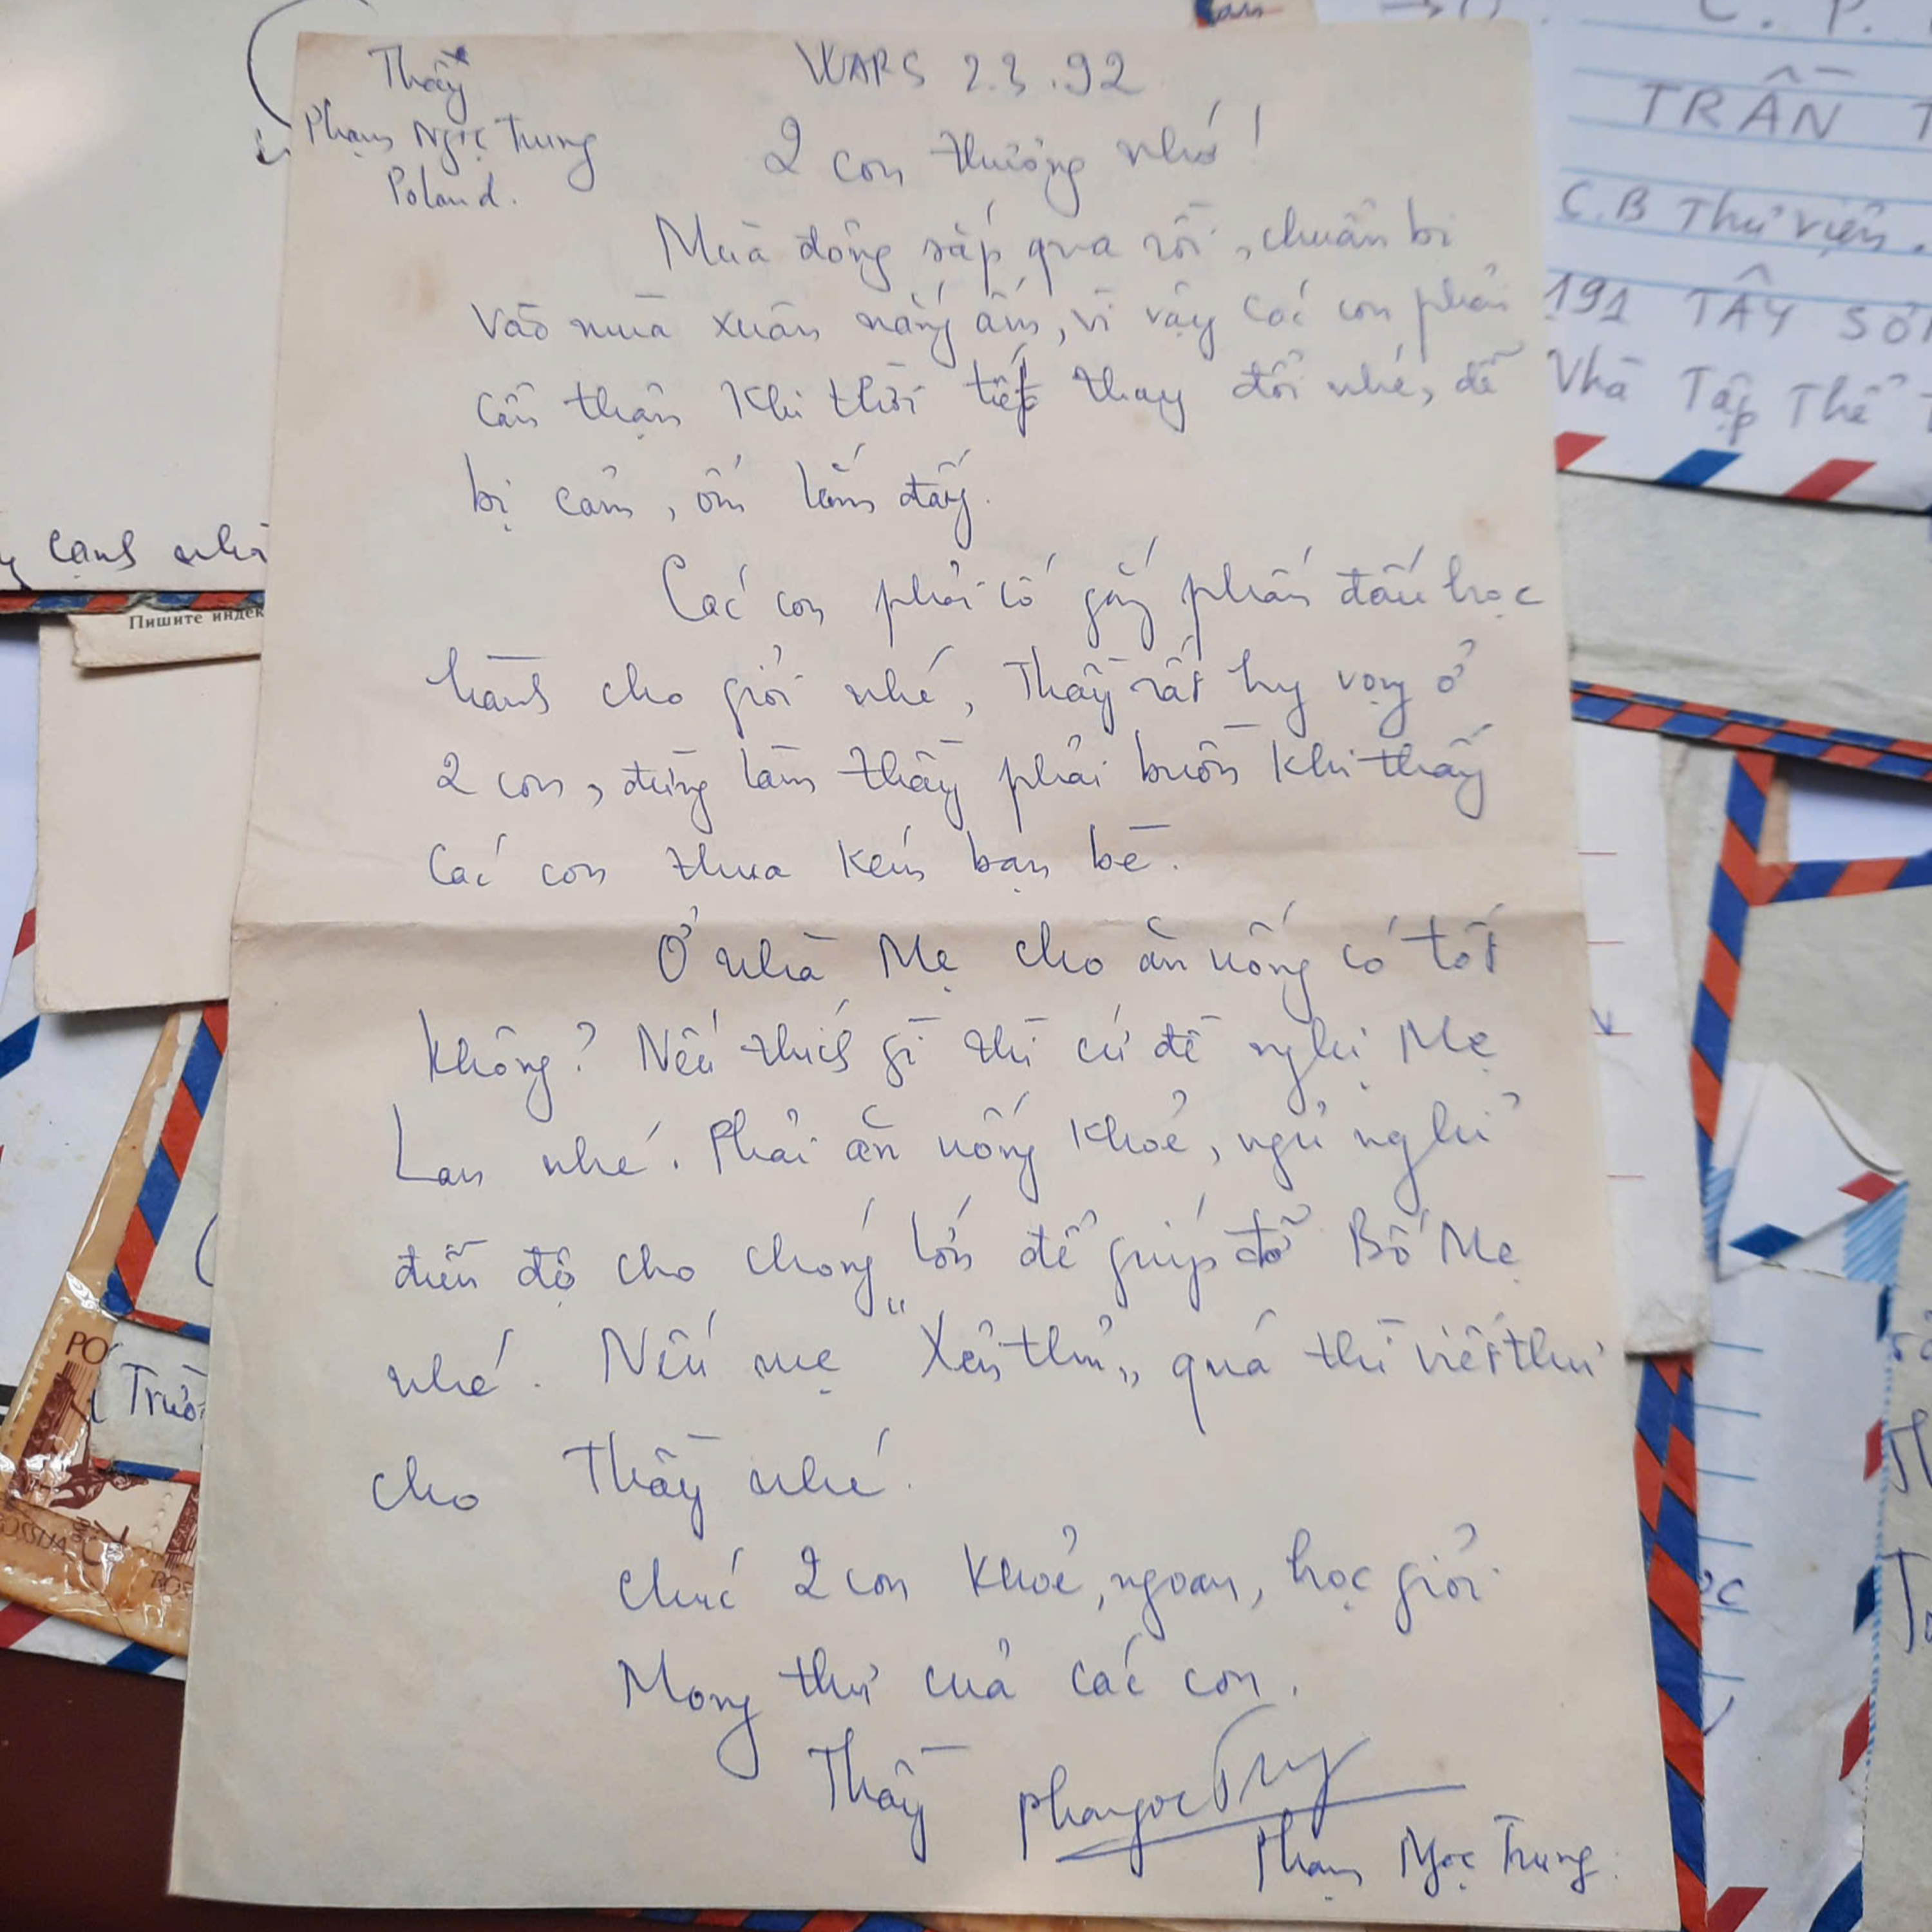 Thầy
Phạm Ngọc Trung
Poland.
WARS 2.3.92
2 con thương nhớ!
Mùa đông sắp qua rồi, chuẩn bị
vào mùa xuân nắng ấm, vì vậy các con phải
cẩn thận khi thời tiết thay đổi nhé, dễ
bị cảm, ốm lắm đấy.
Các con phải cố gắng phấn đấu học
hành cho giỏi nhé, Thầy rất hy vọng ở
2 con, đừng làm thầy phải buồn khi thấy
các con thua kém bạn bè.
Ở nhà Mẹ cho ăn uống có tốt
không? Nếu thích gì thì cứ đề nghị Mẹ
Lan nhé. Phải ăn uống khoẻ, ngủ nghỉ
điều độ cho chóng lớn để giúp đỡ Bố Mẹ
nhé. Nếu mẹ "Xẻn thỉn" quá thì viết thư
cho Thầy nhé.
Chúc 2 con khoẻ, ngoan, học giỏi.
Mong thư của các con.
Thầy
Phạm Ngọc Trung.
TRẦN T
C.B Thư viện.
191 TÂY SƠN
Nhà Tập Thể
cạnh nhà
Пишите индек
PO
Trườ